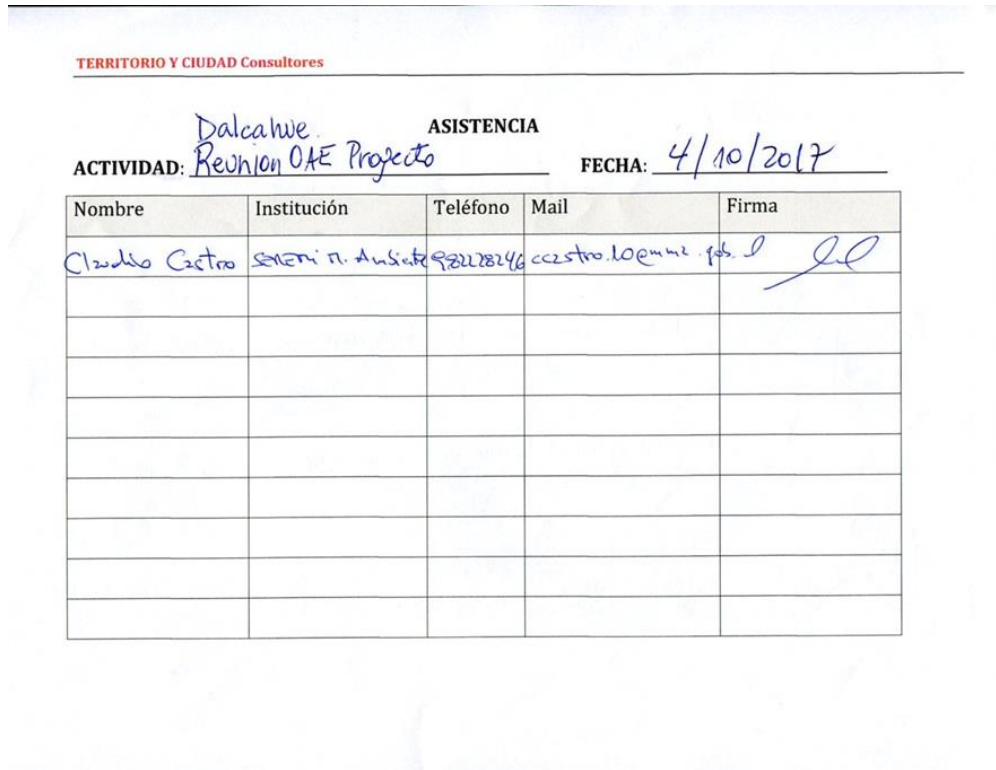 TERRITORIO Y CIUDAD Consultores
ASISTENCIA
Dalcahue.
ACTIVIDAD: Reunion OAE Proyecto FECHA: 4/10/2017
Nombre Institución Teléfono Mail Firma
Claudio Castro SEREMI M. Ambiente 982228246 ccastro.10@mma.gob.cl